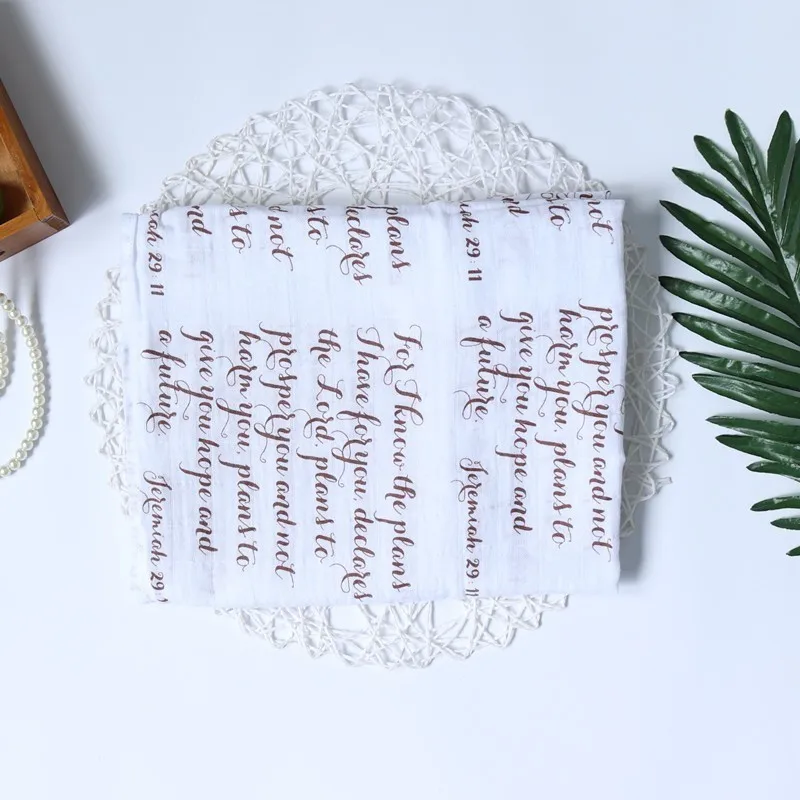 not
prosper you and not
to
harm you, plans to
nd
give you hope and
a future.
iah 29:11
Jeremiah 29:11
plans
For I know the plans
eclares
I have for you, declares
to
the Lord, plans to
not
prosper you and not
s to
harm you, plans to
nd
give you hope and
a future.
iah 29:11
Jeremiah 29: